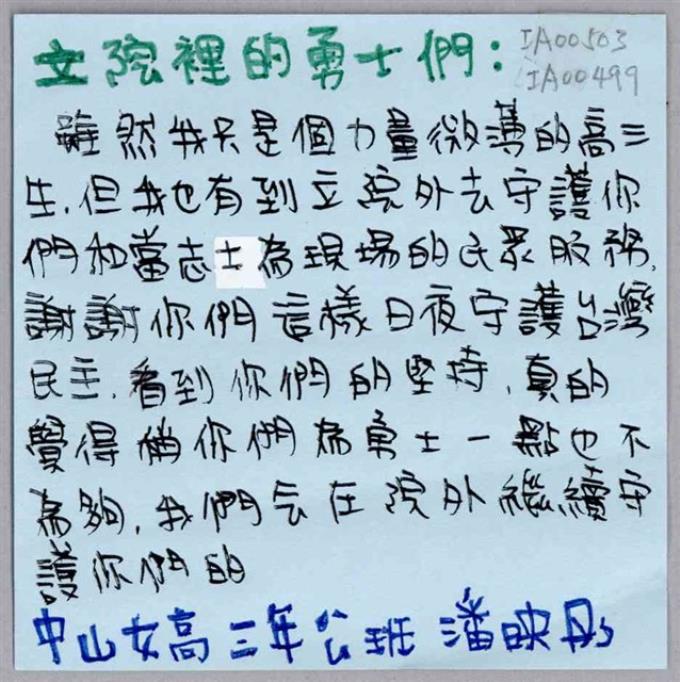 立院裡的勇士們:
IA00503
IA00499
雖然我只是個力量微薄的高三
生,但我也有到立院外去守護你
們和當志士為現場的民眾服務,
謝謝你們這樣日夜守護台灣
民主,看到你們的堅持,真的
覺得稱你們為勇士一點也不
為夠,我們会在院外繼續守
護你們的
中山女高三年公班 潘映彤